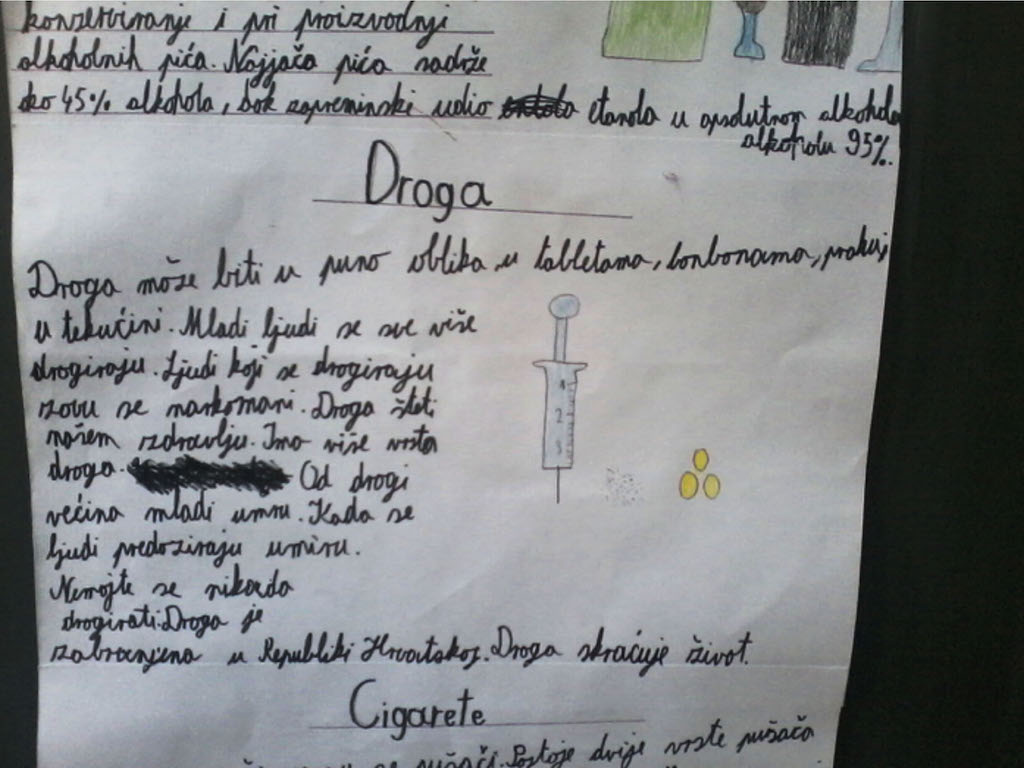 konzerviranje i pri proizvodnji
alkoholnih pića. Najjača pića sadrže
oko 45% alkohola, dok zapreminski udio etanola u apsolutnog alkohola
alkoholu 95%.
Droga
Droga može biti u puno oblika, u tabletama, bonbonama, prahu,
u tekućini. Mladi ljudi se sve više
drogiraju. Ljudi koji se drogiraju
zovu se narkomani. Droga šteti
našem zdravlju. Ima više vrsta
droga. Od drogi
većina mladi umru. Kada se
ljudi predoziraju umiru.
Nemojte se nikada
drogirati. Droga je
zabranjena u Republiki Hrvatskoj. Droga skraćuje život.
4
2
3
Cigarete
se pušači. Postoje dvije vrste pušača